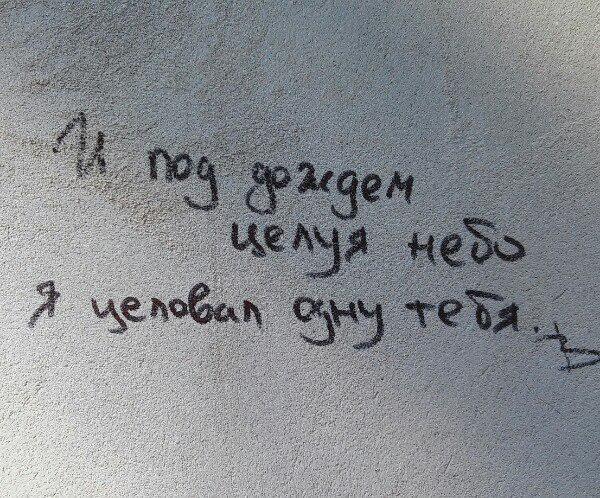 И под дождем
целуя небо
я целовал одну тебя.